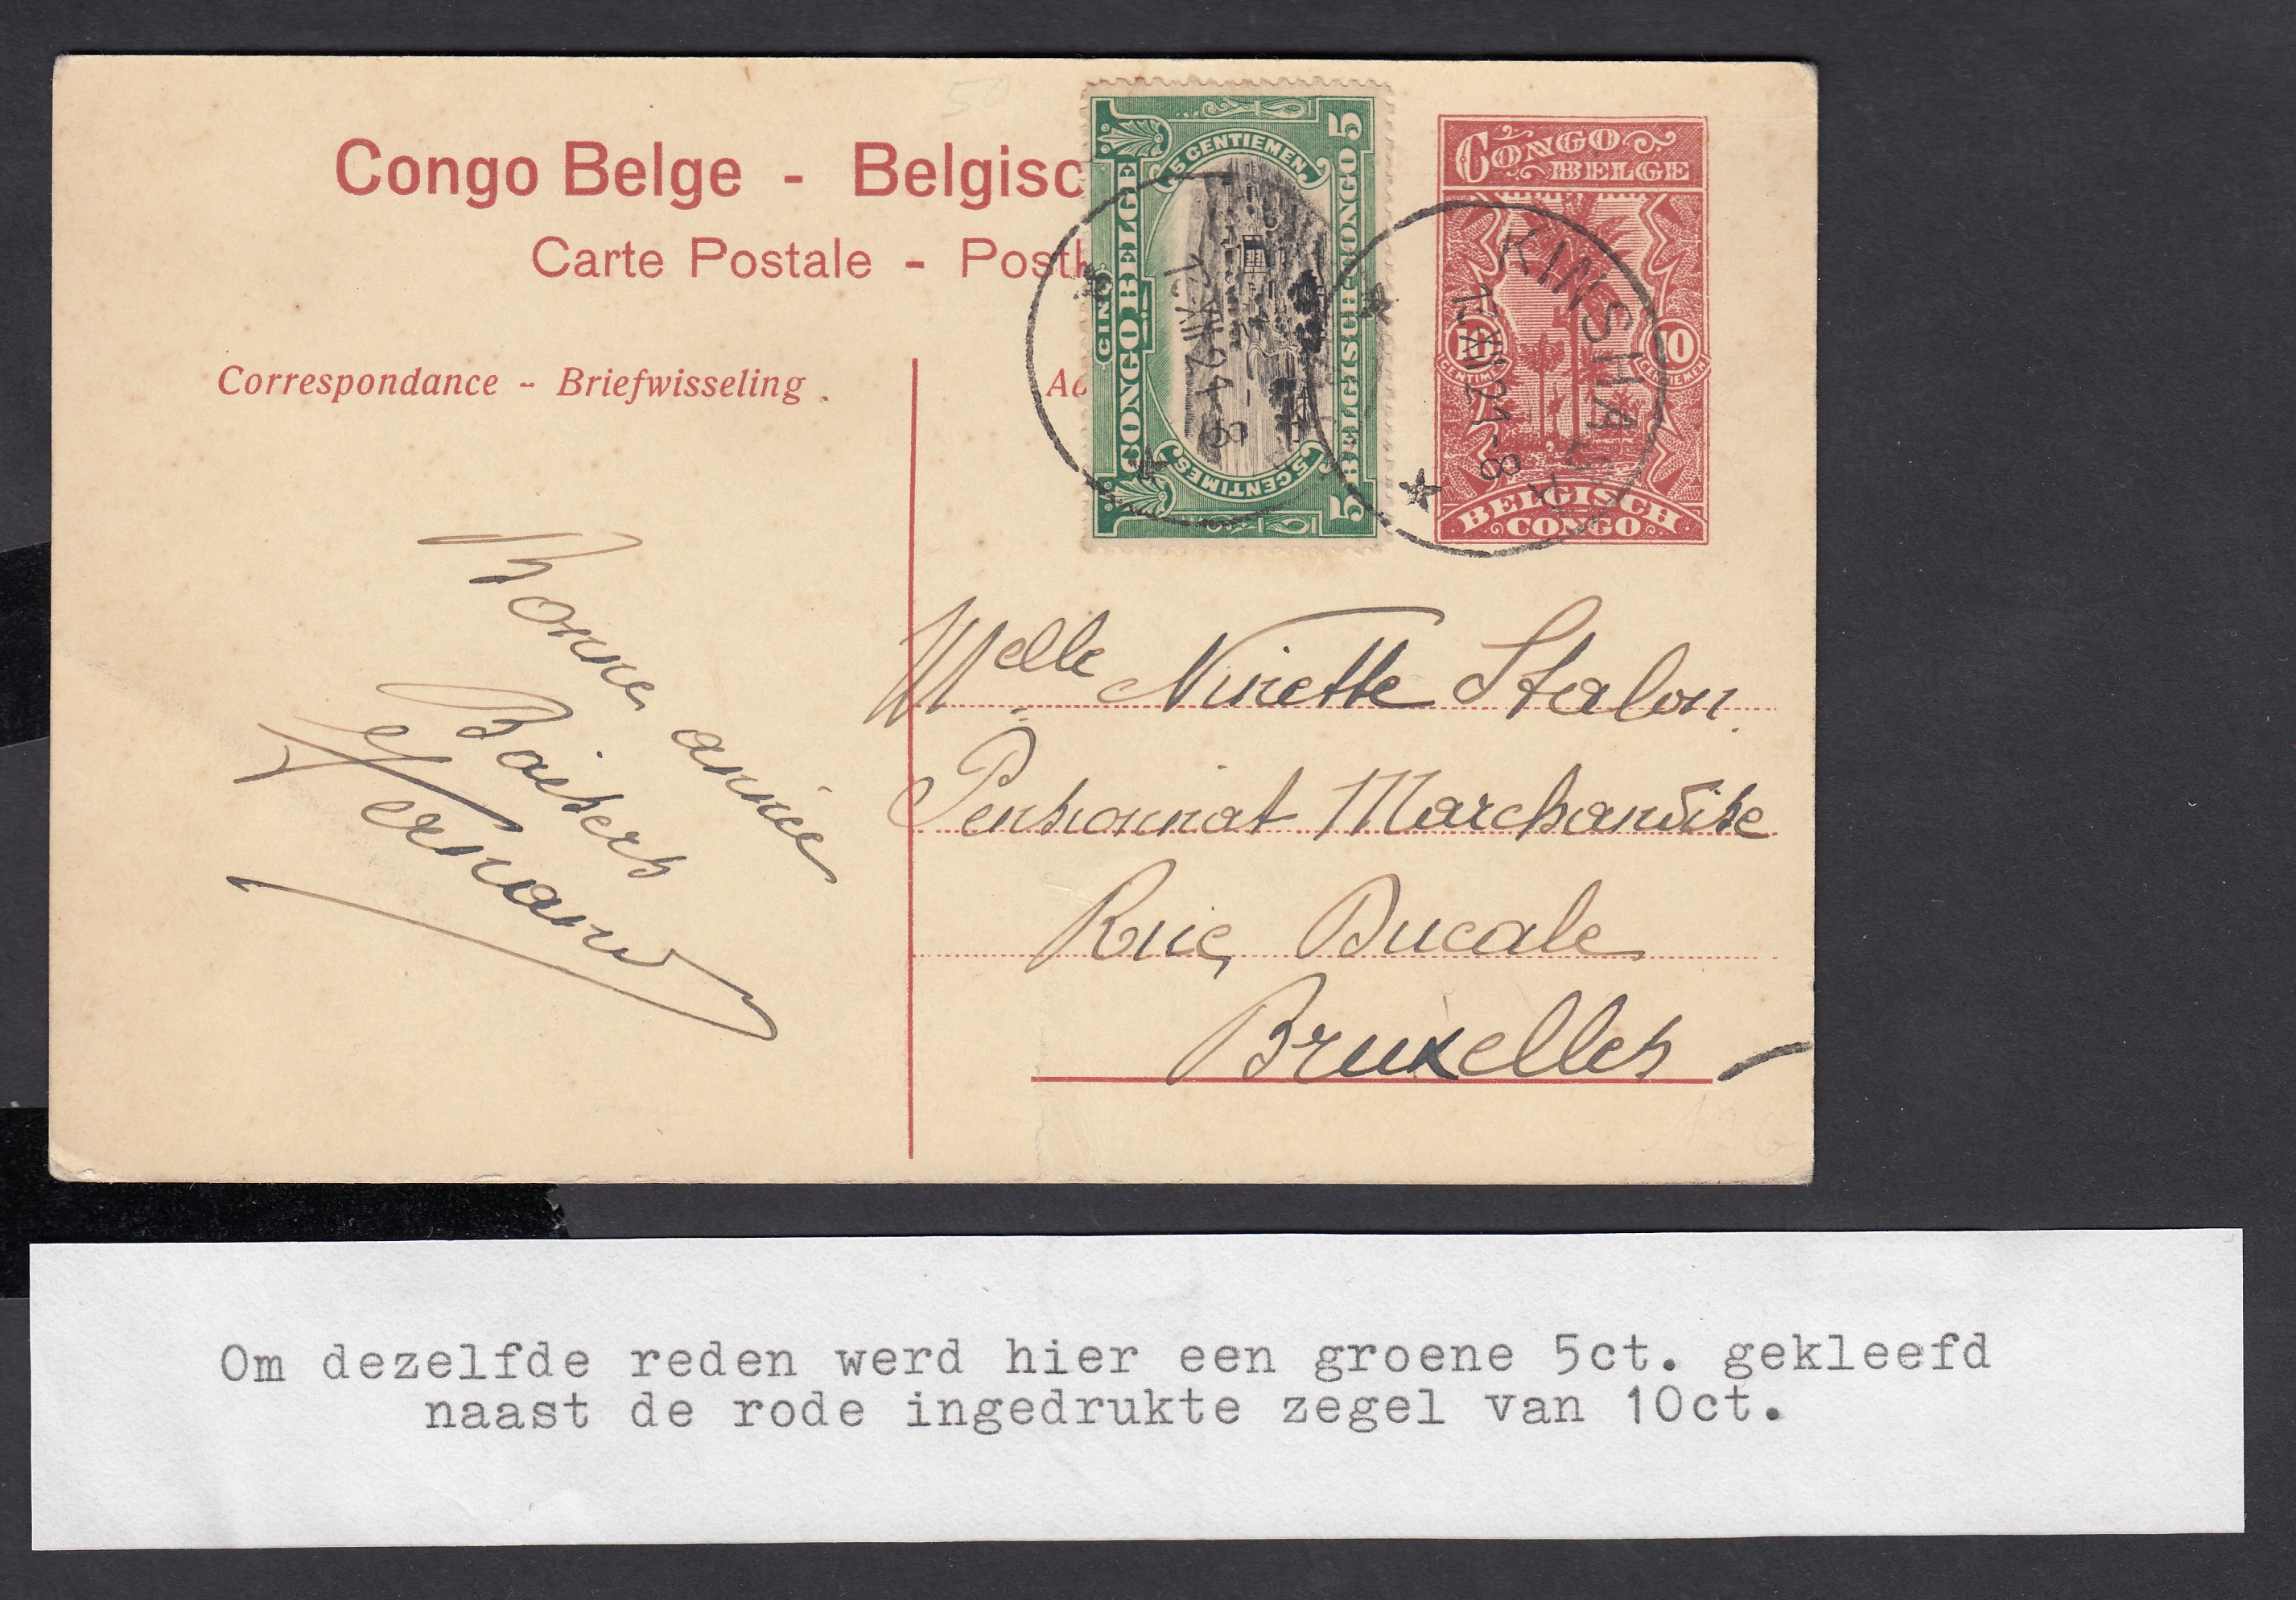 Congo Belge - Belgisc
Carte Postale - Postk
Correspondance - Briefwisseling
5 CENTIEMEN
CINQ
CONGO BELGE
BELGISCH CONGO
5
5
5 CENTIMES
CONGO
BELGE
10
CENTIMES
10
CENTIEMEN
BELGISCH
CONGO
KINSHASA
XII 21-8
XII 21-8
Bonne année
Baisers
Fernand
Melle Ninette Stalon
Pensionnat Marchandise
Rue Ducale
Bruxelles
Om dezelfde reden werd hier een groene 5ct. gekleefd
naast de rode ingedrukte zegel van 10ct.